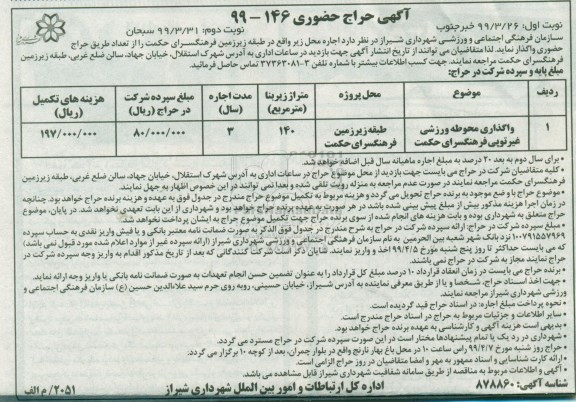 آگهی حراج حضوری ۱۴۶ - ۹۹
نوبت اول: ۹۹/۳/۲۶ خبرجنوب
نوبت دوم: ۹۹/۳/۳۱ سبحان
سازمان فرهنگی اجتماعی و ورزشی شهرداری شیراز در نظر دارد اجاره محل زیر واقع در طبقه زیرزمین فرهنگسرای حکمت را از تعداد طریق حراج
حضوری واگذار نماید. لذا متقاضیان می توانند از تاریخ انتشار آگهی جهت بازدید در ساعات اداری به آدرس شهرک استقلال، خیابان جهاد، سالن ضلع غربی، طبقه زیرزمین
فرهنگسرای حکمت مراجعه نمایند. جهت کسب اطلاعات بیشتر با شماره تلفن ۳-۳۷۳۶۳۰۸۱ تماس حاصل فرمائید.
مبلغ پایه و سپرده شرکت در حراج:
ردیف موضوع محل پروژه متراژ زیربنا (مترمربع) مدت اجاره (سال) مبلغ سپرده شرکت در حراج (ریال) هزینه های تکمیل (ریال)
۱ واگذاری محوطه ورزشی غیرتوپی فرهنگسرای حکمت طبقه زیرزمین فرهنگسرای حکمت ۱۴۰ ۳ ۸۰/۰۰۰/۰۰۰ ۱۹۷/۰۰۰/۰۰۰
• برای سال دوم به بعد ۲۰ درصد به مبلغ اجاره ماهیانه سال قبل اضافه خواهد شد.
• کلیه متقاضیان شرکت در حراج می بایست جهت بازدید از محل موضوع حراج در ساعات اداری به آدرس شهرک استقلال، خیابان جهاد، سالن ضلع غربی، طبقه زیرزمین
فرهنگسرای حکمت مراجعه نمایند در صورت عدم مراجعه به منزله رویت تلقی شده و بعدا نمی توانند در این خصوص اظهار به جهل نمایند.
• موضوع حراج با وضع موجود به برنده حراج تحویل می گردد و هزینه مربوط به تکمیل موضوع حراج مندرج در جدول فوق به عهده و هزینه برنده حراج خواهد بود. چنانچه
در زمان اجرا هزینه مذکور بیش از مبلغ پیش بینی شده باشد در هر صورت به عهده برنده حراج خواهد بود و شهرداری از این بابت تعهدی نخواهد شد. در پایان، موضوع
حراج متعلق به شهرداری بوده و بابت هزینه های انجام شده از سوی برنده حراج جهت تکمیل موضوع حراج به ایشان پرداخت نخواهد شد.
• مبلغ سپرده شرکت در حراج: ارائه سپرده شرکت در حراج به شرح مندرج در جدول فوق الذکر به صورت ضمانت نامه معتبر بانکی و یا فیش واریز نقدی به حساب سپرده
۱۰۰۷۹۱۵۵۷۹۶۹ نزد بانک شهر شعبه بین الحرمین به نام سازمان فرهنگی اجتماعی و ورزشی شهرداری شیراز (ارائه سپرده غیر از موارد اعلام شده مورد قبول نمی باشد)
که می بایست حداکثر تا روز پنج شنبه مورخ ۹۹/۴/۵ اخذ و واریز نمایند. شایان ذکر است شرکت کنندگانی که بعد از تاریخ مذکور اقدام به واریز وجه سپرده شرکت در
حراج نمایند مجاز به شرکت در حراج نمی باشند.
• برنده حراج می بایست در زمان انعقاد قرارداد ۱۰ درصد مبلغ کل قرارداد را به عنوان تضمین حسن انجام تعهدات به صورت ضمانت نامه بانکی یا واریز وجه ارائه نماید.
• جهت اخذ اسناد حراج، شخصا و یا از طریق معرفی نماینده به آدرس شیراز، خیابان حسینی، روبه روی حرم سید علاءالدین حسین (ع) سازمان فرهنگی اجتماعی و
ورزشی شهرداری شیراز مراجعه نمایند.
• نحوه پرداخت مبلغ اجاره: در اسناد حراج قید گردیده است.
• سایر اطلاعات و جزئیات مربوط به حراج در اسناد حراج مندرج است.
• بدیهی است هزینه آگهی و کارشناسی به عهده برنده حراج خواهد بود.
• شهرداری در رد یک یا تمام پیشنهادها مختار است در این صورت سپرده شرکت در حراج مسترد می گردد.
• حراج روز شنبه مورخ ۹۹/۴/۷ راس ساعت ۱۰ در محل باغ بهار نارنج واقع در بلوار چمران، بعد از کوچه ۱۰ برگزار می گردد.
• ارائه کارت شناسایی و اسناد ممهور به مهر و امضا متقاضیان در روز حراج الزامی است.
• آگهی و اطلاعات مربوط به مناقصه از طریق سامانه شفافیت شهرداری شیراز قابل مشاهده می باشد.
شناسه آگهی: ۸۷۸۸۶۰
اداره کل ارتباطات و امور بین الملل شهرداری شیراز
۲۰۵۱/ م الف